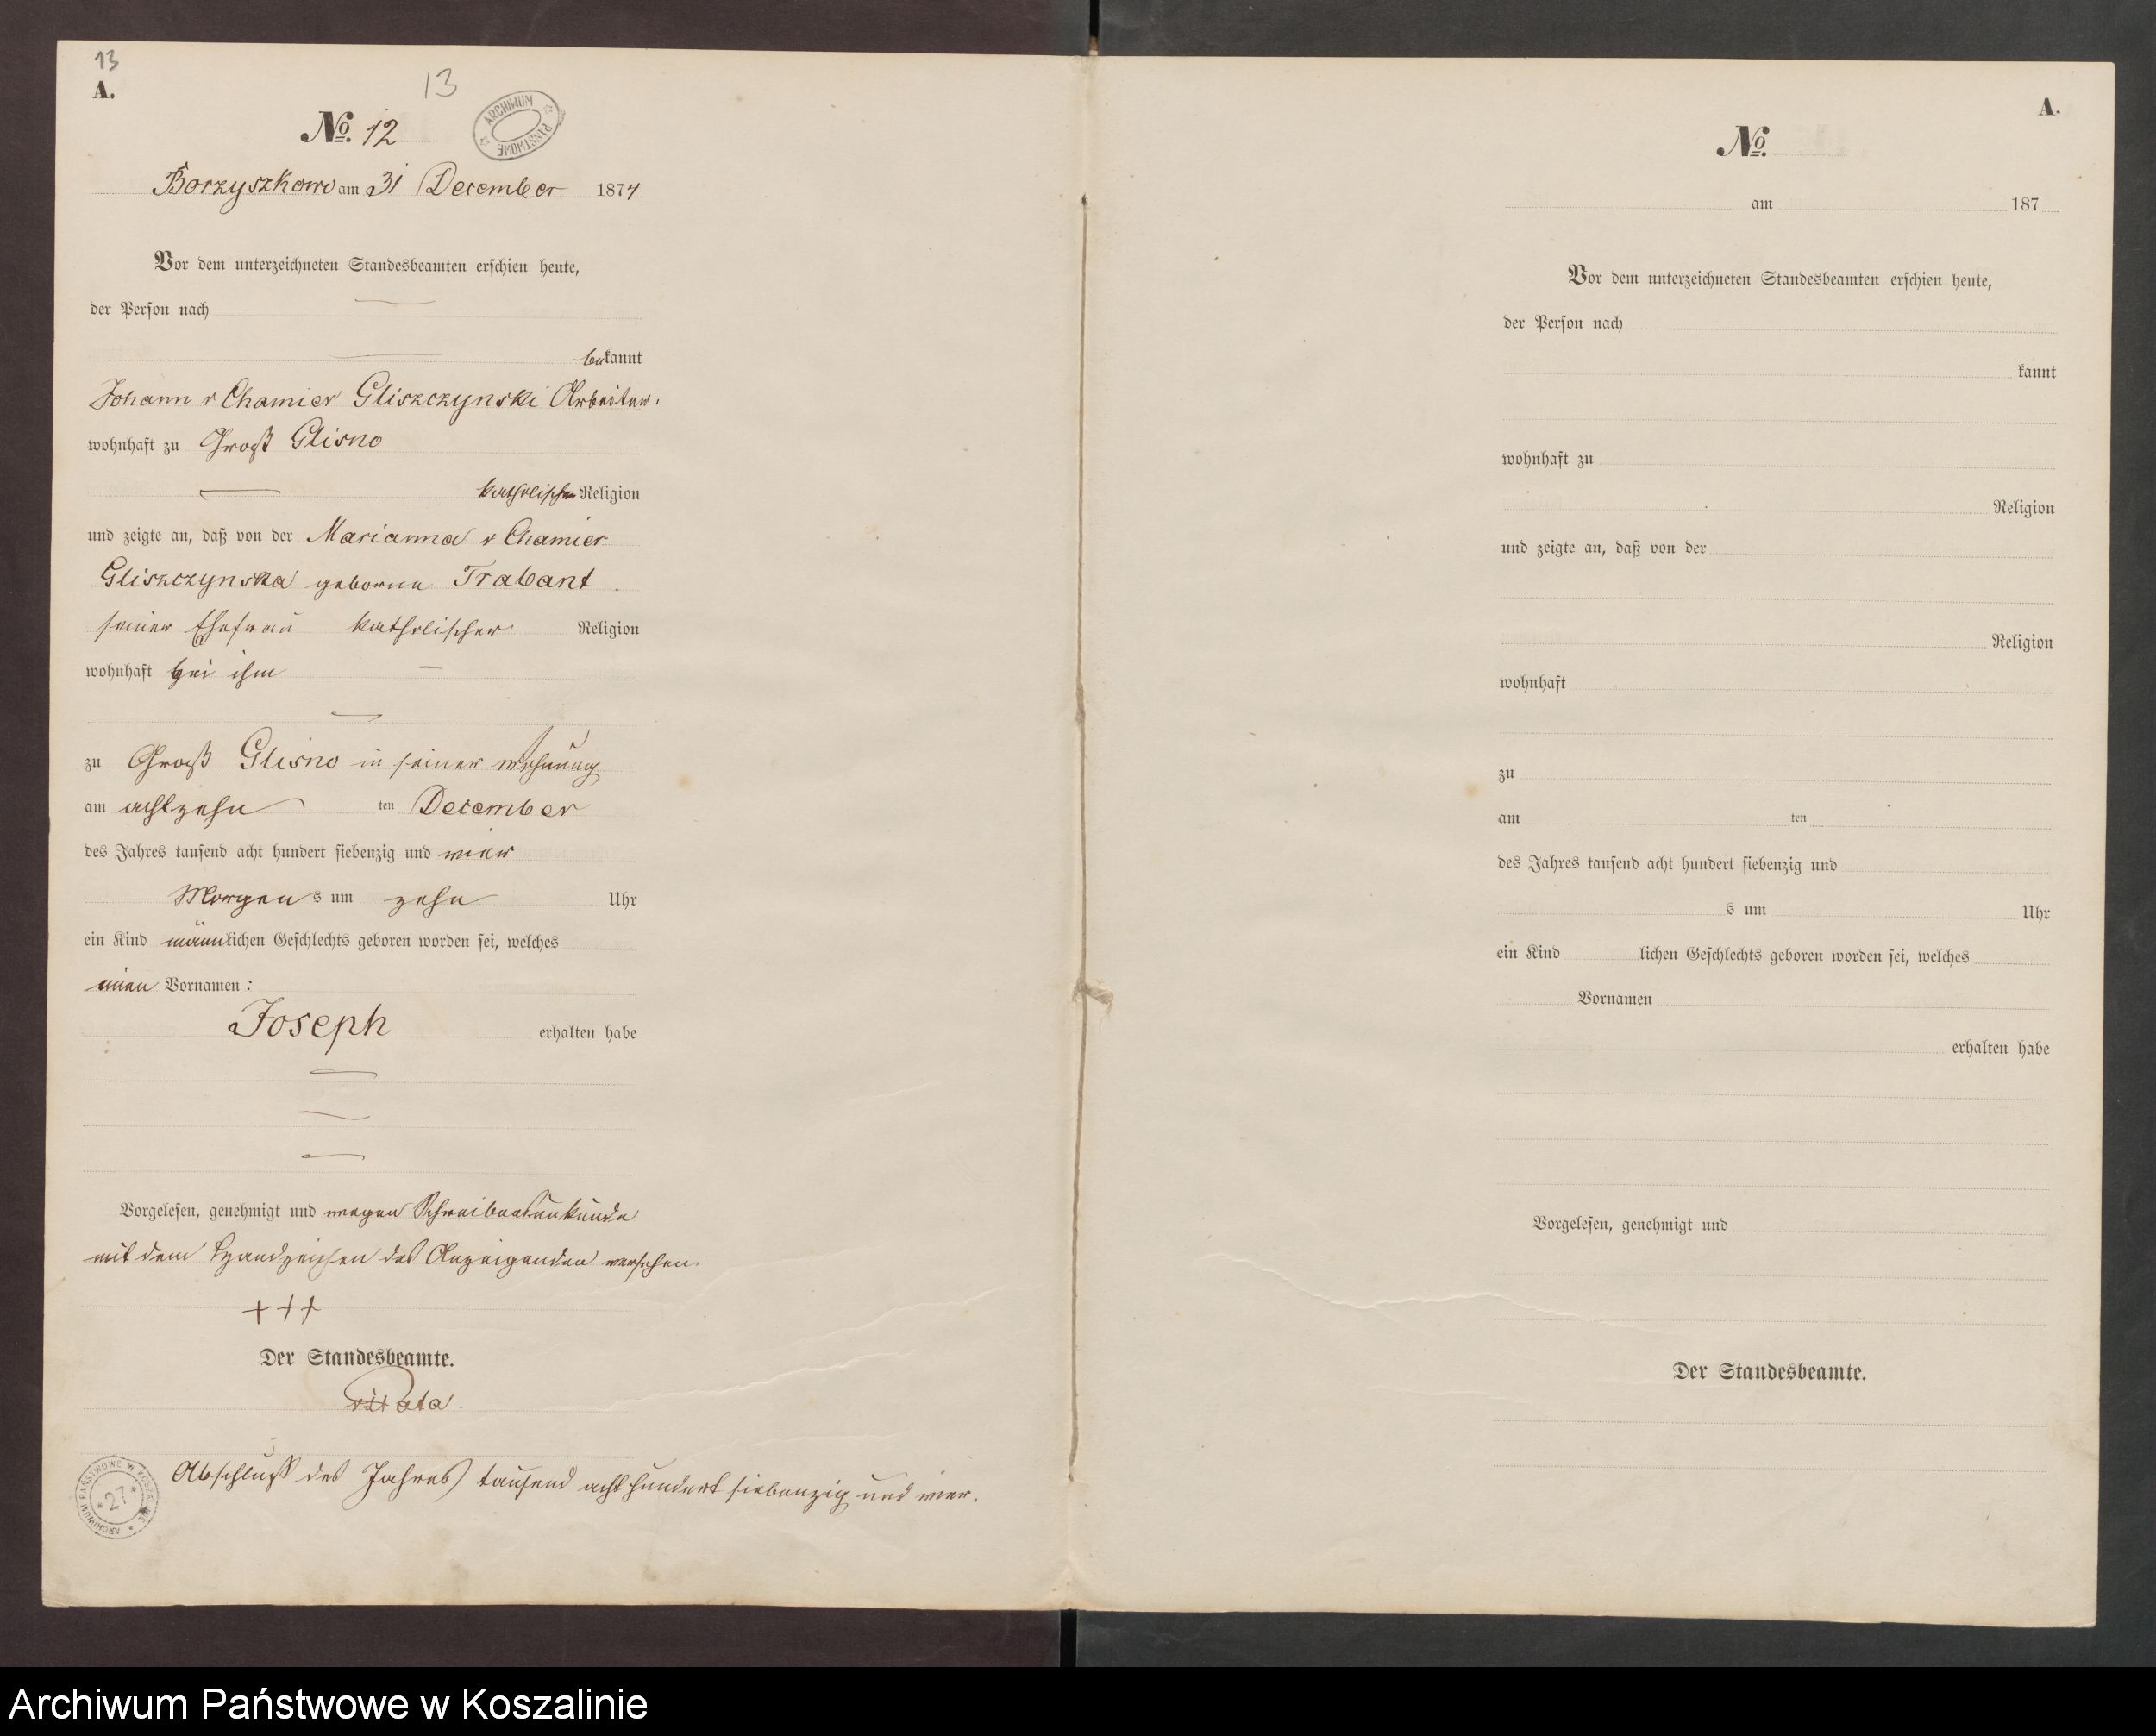 13
A.
13
No. 12
ARCHIWUM PAŃSTWOWE
Borzyszkowo am 31 December 1874
Vor dem unterzeichneten Standesbeamten erschien heute,
der Person nach
bekannt
Johann v Chamier Gliszczynski Arbeiter.
wohnhaft zu Groß Glisno
katholischer Religion
und zeigte an, daß von der Marianna v Chamier
Gliszczynska geborne Trabant
seiner Ehefrau katholischer Religion
wohnhaft bei ihm
zu Groß Glisno in seiner Wohnung
am achtzehn ten December
des Jahres tausend acht hundert siebenzig und vier
Morgens um zehn Uhr
ein Kind männlichen Geschlechts geboren worden sei, welches
einen Vornamen :
Joseph erhalten habe
Vorgelesen, genehmigt und wegen Schreibensunkunde
mit dem Handzeichen des Anzeigenden versehen
+++
Der Standesbeamte.
Abschluß des Jahres tausend acht hundert siebenzig und vier.
ARCHIWUM PAŃSTWOWE W KOSZALINIE * 27 *
A.
No.
am 187
Vor dem unterzeichneten Standesbeamten erschien heute,
der Person nach
kannt
wohnhaft zu
Religion
und zeigte an, daß von der
Religion
wohnhaft
zu
am ten
des Jahres tausend acht hundert siebenzig und
s um Uhr
ein Kind lichen Geschlechts geboren worden sei, welches
Vornamen
erhalten habe
Vorgelesen, genehmigt und
Der Standesbeamte.
Archiwum Państwowe w Koszalinie